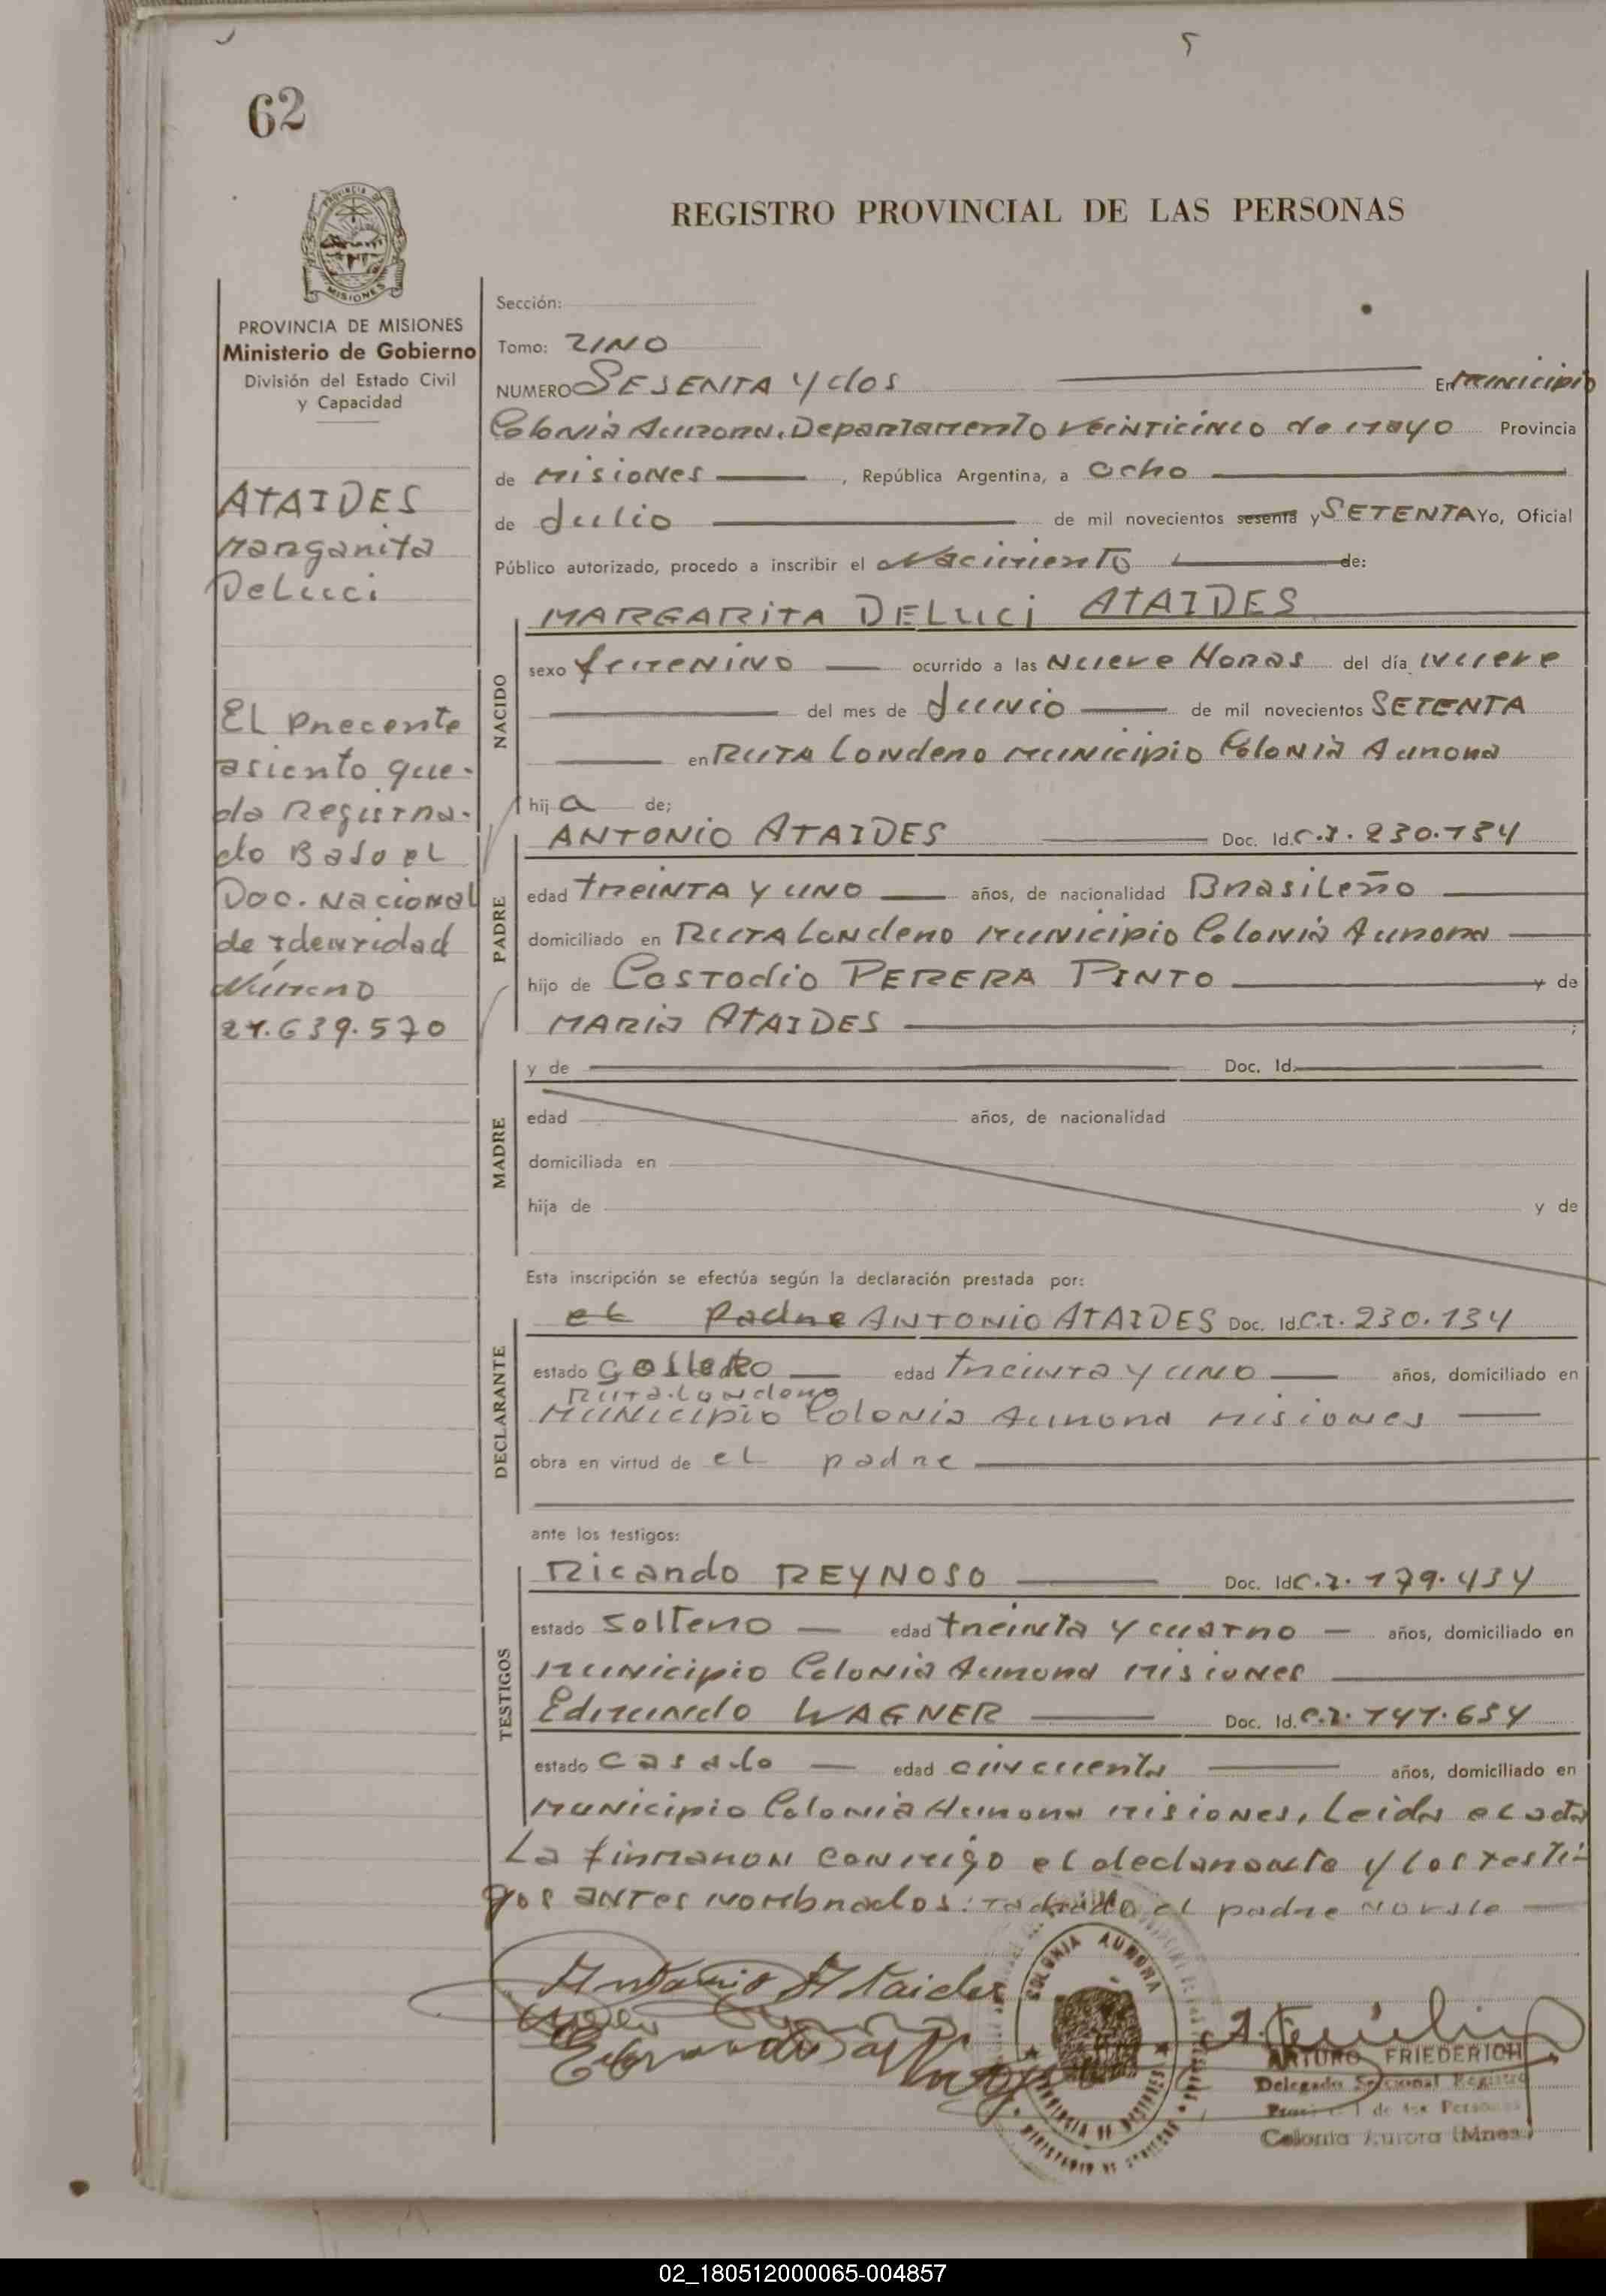 5
62
REGISTRO PROVINCIAL DE LAS PERSONAS
PROVINCIA DE MISIONES
Ministerio de Gobierno
División del Estado Civil
y Capacidad
ATAIDES
Margarita
DeLuci
El precente
asiento que-
da Registra-
do Bajo el
Doc. Nacional
de Identidad
Número
21.639.570
Sección:
Tomo: UNO
NUMERO SESENTA y dos En Municipio
Colonia Aurora. Departamento veinticinco de mayo Provincia
de Misiones, República Argentina, a ocho
de Julio de mil novecientos sesenta y SETENTA Yo, Oficial
Público autorizado, procedo a inscribir el Nacimiento de:
NACIDO
MARGARITA DELUCI ATAIDES
sexo femenino ocurrido a las Nueve Horas del día Nueve
del mes de Junio de mil novecientos SETENTA
en RUTA Londero Municipio Colonia Aurora
hija de;
PADRE
ANTONIO ATAIDES Doc. Id. C.I. 230.134
edad treinta y uno años, de nacionalidad Brasileño
domiciliado en Ruta Londero Municipio Colonia Aurora
hijo de Costodio PERERA PINTO y de
Maria ATAIDES ;
MADRE
y de Doc. Id.
edad años, de nacionalidad
domiciliada en
hija de y de
Esta inscripción se efectúa según la declaración prestada por:
DECLARANTE
el padre ANTONIO ATAIDES Doc. Id. C.I. 230.134
estado edad treinta y uno años, domiciliado en
Ruta Londero
Municipio Colonia Aurora Misiones
obra en virtud de el padre
ante los testigos:
TESTIGOS
Ricardo REYNOSO Doc. Id C.I. 179.434
estado soltero edad treinta y cuatro años, domiciliado en
Municipio Colonia Aurora Misiones
Edmundo WAGNER Doc. Id. C.I. 141.654
estado casado edad cincuenta años, domiciliado en
Municipio Colonia Aurora Misiones, Leida el acta
La firmaron conmigo el declarante y los testi-
gos antes nombrados: el padre no vale
Antonio Ataides
COLONIA AURORA
PROVINCIA DE MISIONES
MINISTERIO DE GOBIERNO
ARTURO FRIEDERICH
Delegado Seccional Registro
Provincial de las Personas
Colonia Aurora (Mnes.)
02_180512000065-004857